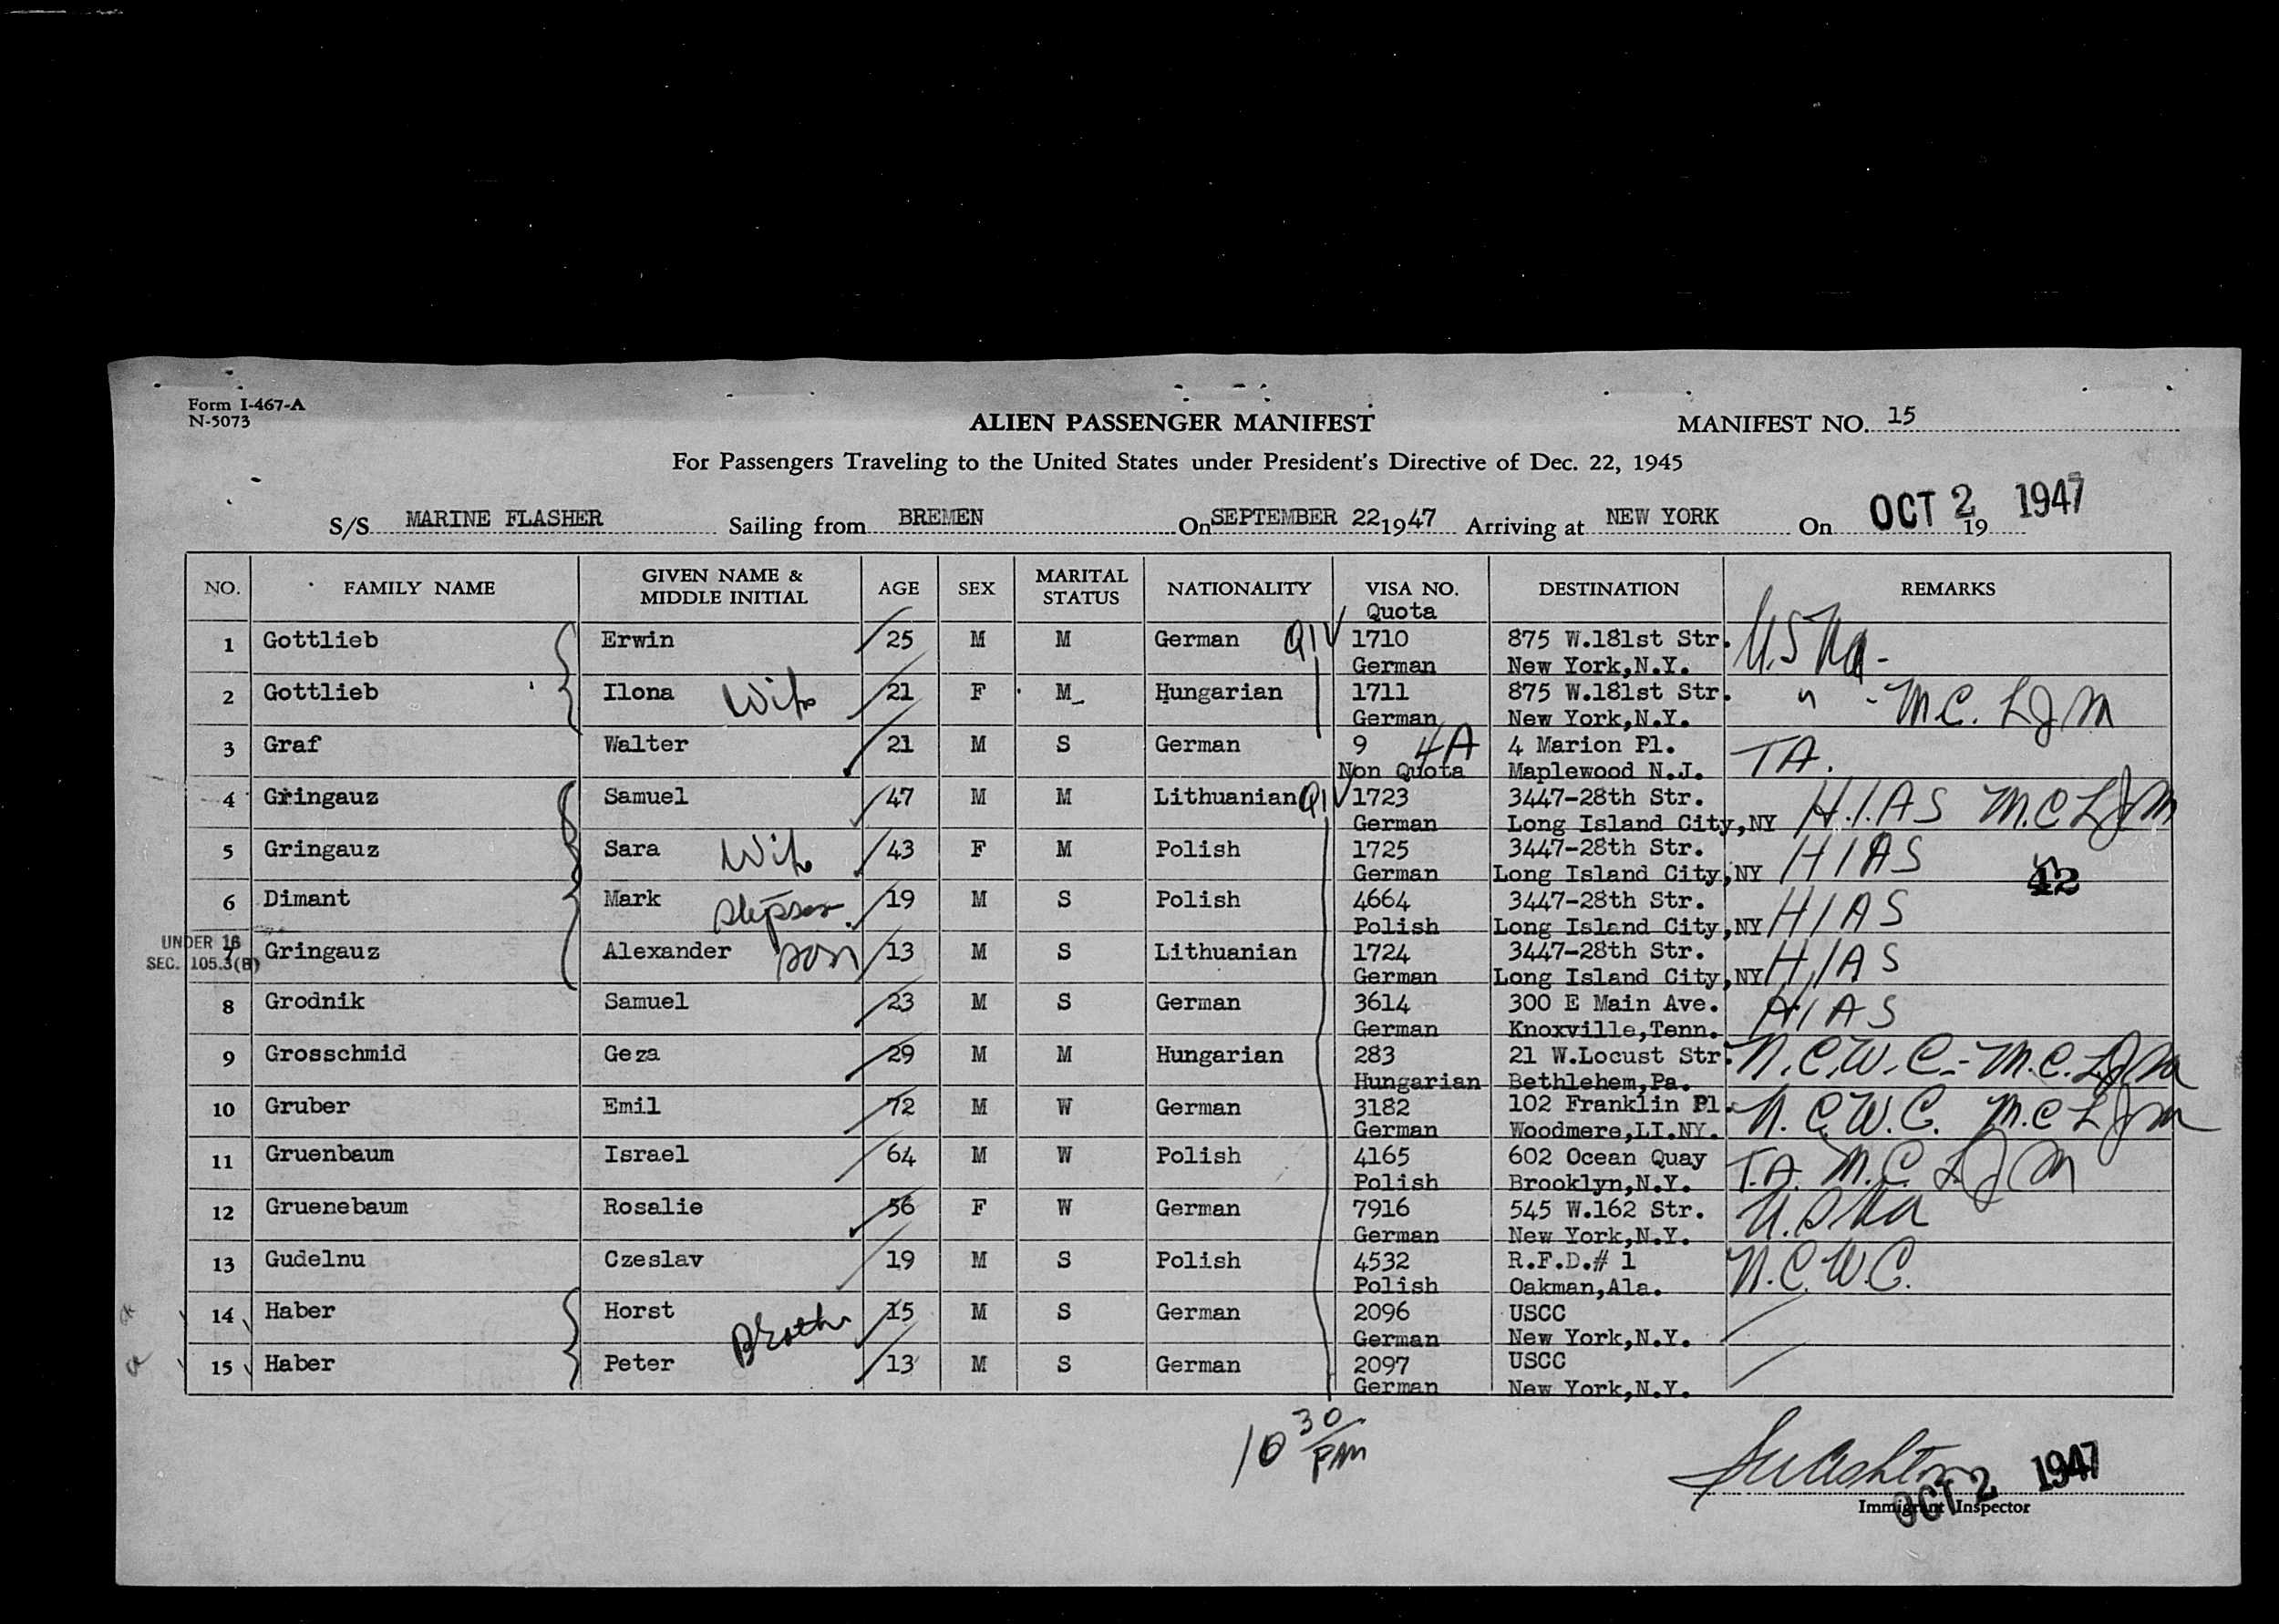 Form I-467-A
N-5073
ALIEN PASSENGER MANIFEST
MANIFEST NO. 15
For Passengers Traveling to the United States under President's Directive of Dec. 22, 1945
S/S MARINE FLASHER Sailing from BREMEN On SEPTEMBER 22 1947 Arriving at NEW YORK On OCT 2 19 1947
NO. FAMILY NAME GIVEN NAME & MIDDLE INITIAL AGE SEX MARITAL STATUS NATIONALITY VISA NO. DESTINATION REMARKS
Quota
1 Gottlieb Erwin 25 M M German QIV 1710 875 W.181st Str. U.S Na-
German New York,N.Y.
2 Gottlieb Ilona Wife 21 F M Hungarian 1711 875 W.181st Str. " - M.C. LJM
German New York,N.Y.
3 Graf Walter 21 M S German 9 4A 4 Marion Pl. T.A.
Non Quota Maplewood N.J.
4 Gringauz Samuel 47 M M Lithuanian QIV 1723 3447-28th Str. H.I.A S M.C LJM
German Long Island City,NY
5 Gringauz Sara Wife 43 F M Polish 1725 3447-28th Str. H I A S
German Long Island City,NY 42
6 Dimant Mark stepson 19 M S Polish 4664 3447-28th Str. H I A S
Polish Long Island City,NY
UNDER 16
SEC. 105.3(B)
7 Gringauz Alexander son 13 M S Lithuanian 1724 3447-28th Str. H I A S
German Long Island City,NY
8 Grodnik Samuel 23 M S German 3614 300 E Main Ave. H I A S
German Knoxville,Tenn.
9 Grosschmid Geza 29 M M Hungarian 283 21 W.Locust Str. N.C.W.C.- M.C. LJM
Hungarian Bethlehem,Pa.
10 Gruber Emil 72 M W German 3182 102 Franklin Pl. N.C.W.C. M.C LJM
German Woodmere,LI.NY.
11 Gruenbaum Israel 64 M W Polish 4165 602 Ocean Quay T.A. M.C. LJM
Polish Brooklyn,N.Y.
12 Gruenebaum Rosalie 56 F W German 7916 545 W.162 Str. U.S Na
German New York,N.Y.
13 Gudelnu Czeslav 19 M S Polish 4532 R.F.D.# 1 N.C.W.C.
Polish Oakman,Ala.
14 Haber Horst 15 M S German 2096 USCC
Brother German New York,N.Y.
15 Haber Peter 13 M S German 2097 USCC
German New York,N.Y.
10 30 PM
OCT 2 1947
Immigrant Inspector